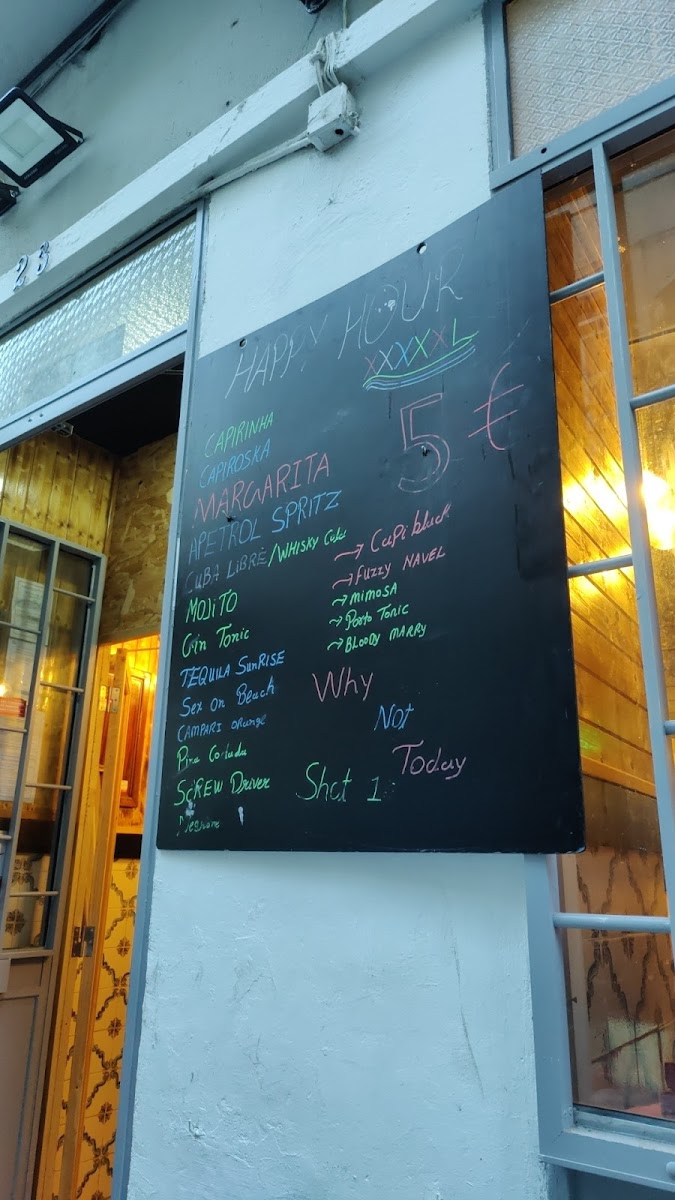 23
HAPPY HOUR
XXXXXL
5 €
CAPIRINHA
CAPIROSKA
MARGARITA
APETROL SPRITZ
CUBA LIBRE/WHISKY Cola
MOJITO
Gin Tonic
TEQUILA SunRISE
Sex on Beach
CAMPARI orange
Pina Colada
ScREW Driver
Negroni
→ Capi black
→ FUZZY NAVEL
→ MIMOSA
→ Porto Tonic
→ BLOODY MARRY
Why
Not
Today
Shot 1